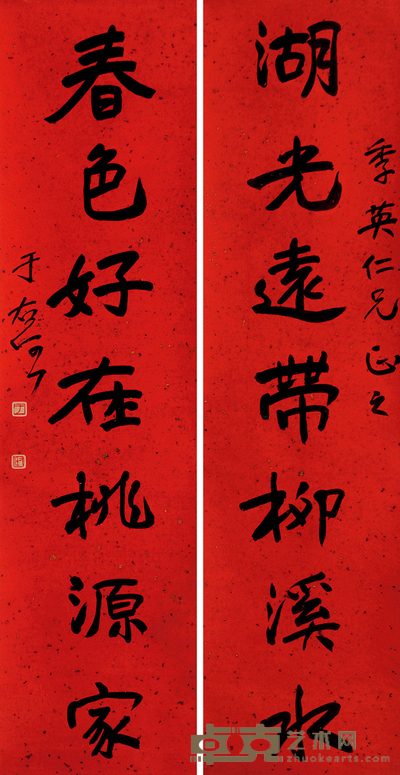 季英仁兄正之
湖光遠帶柳溪水
春色好在桃源家
于右任
卓克艺术网
zhuokearts.com